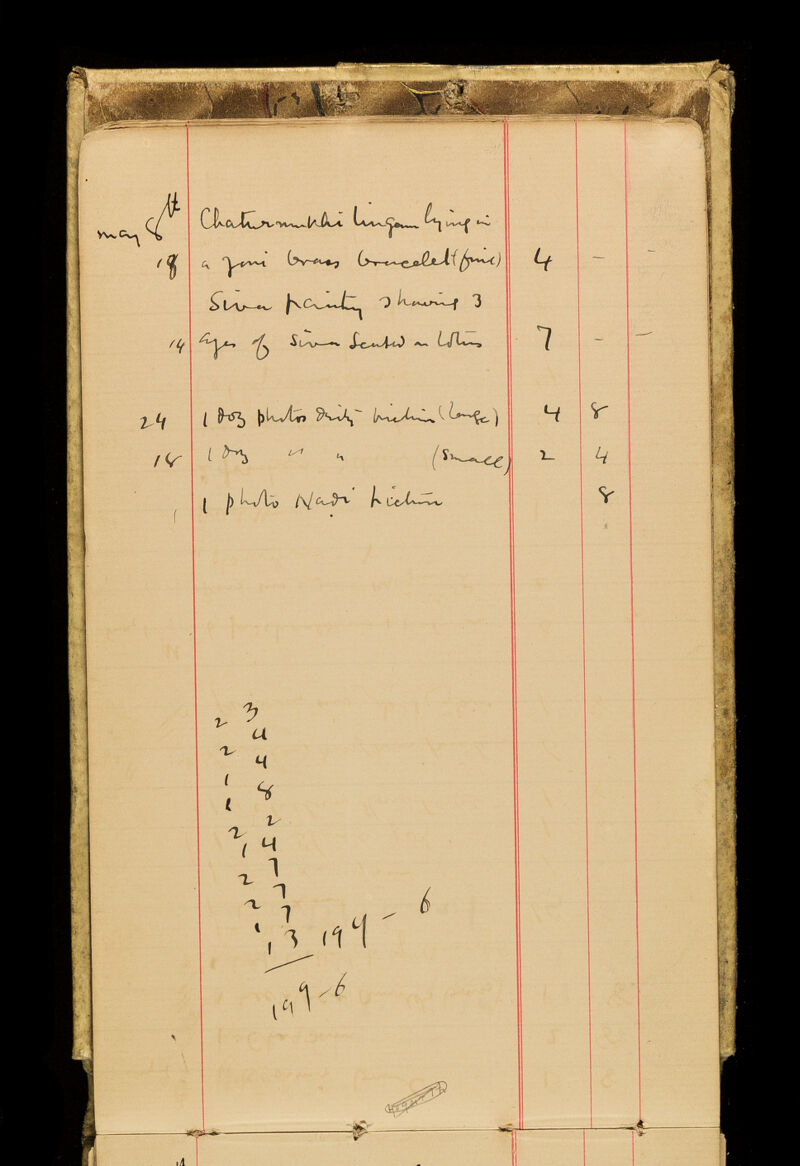 May 8th Chaturmukhi lingam lying in
18 a yoni brass bracelet (fine) 4 - -
Siva painting showing 3
14 eyes of Siva seated on lotus 7 - -
24 1 doz photos Deity picture (large) 4 8
18 1 doz " " (small) 2 4
1 1 photo Nadi picture 8
2 3
4
2 4
1 8
1 2
2 4
1 7
2 7
2 7
1 13 194 - 6
199 - 6